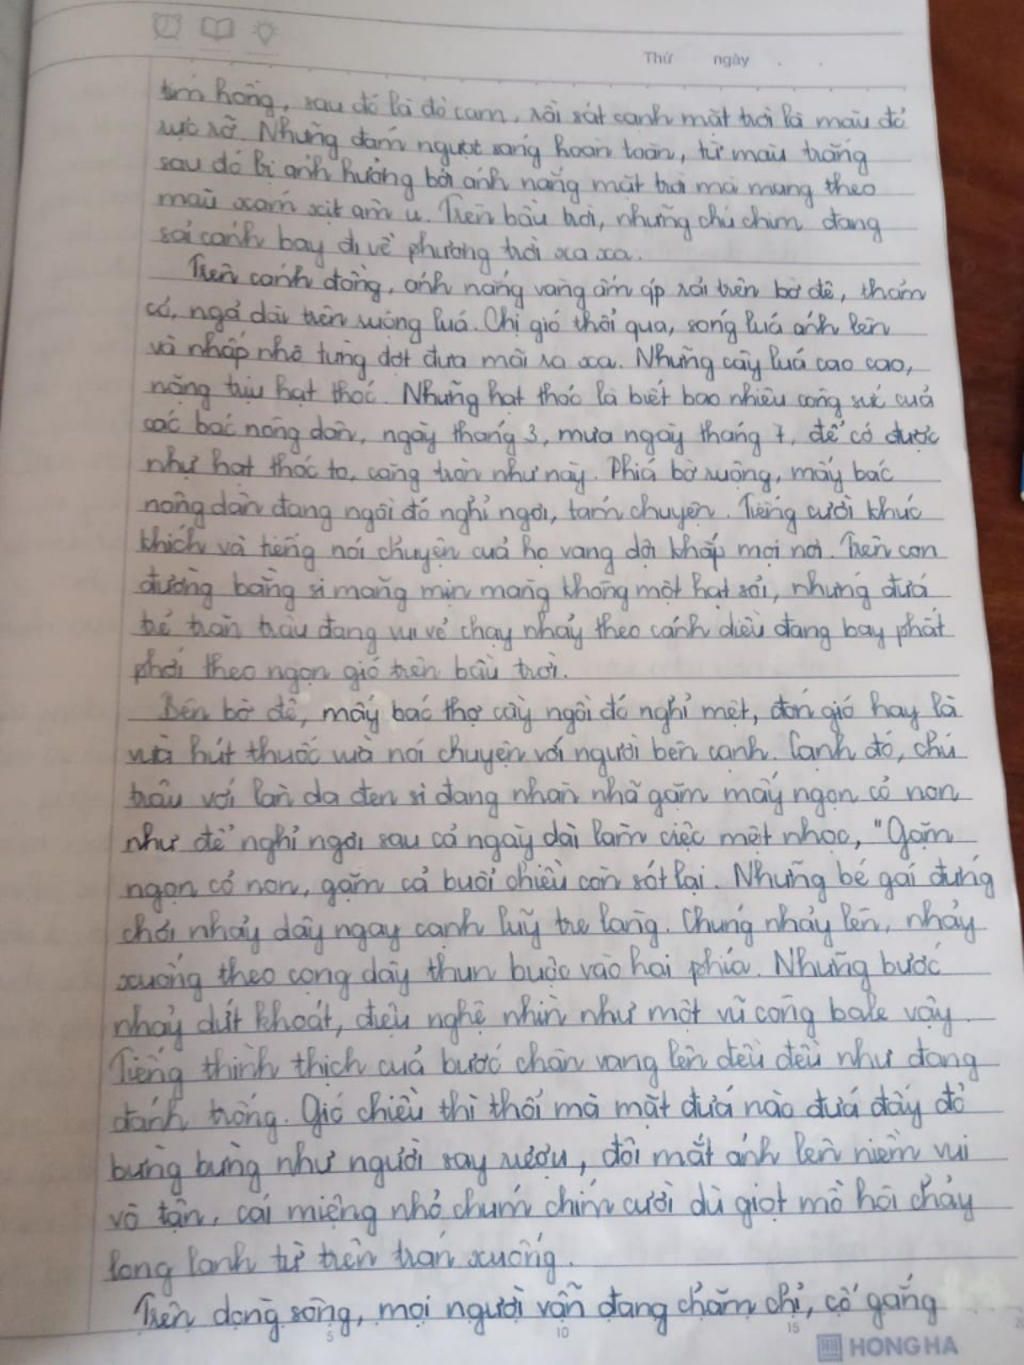 Thứ ngày . .
tím hồng, sau đó là đỏ cam, rồi sát cạnh mặt trời là màu đỏ
rực rỡ. Những đám ngượt sang hoàn toàn, từ màu trắng
sau đó bị ảnh hưởng bởi ánh nắng mặt trời mà mang theo
màu xám xịt âm u. Trên bầu trời, những chú chim đang
sải cánh bay đi về phương trời xa xa.
Trên cánh đồng, ánh nắng vàng ấm áp rải trên bờ đê, thảm
cỏ, ngả dài trên ruộng lúa. Chị gió thổi qua, sóng lúa ánh lên
và nhấp nhô từng đợt đưa mãi ra xa. Những cây lúa cao cao,
nặng trịu hạt thóc. Những hạt thóc là biết bao nhiêu công sức của
các bác nông dân, ngày tháng 3, mưa ngày tháng 7, để có được
như hạt thóc to, căng tròn như này. Phía bờ ruộng, mấy bác
nông dân đang ngồi đó nghỉ ngơi, tám chuyện. Tiếng cười khúc
khích và tiếng nói chuyện của họ vang dội khắp mọi nơi. Trên con
đường bằng si măng mịn màng không một hạt sỏi, những đứa
trẻ trăn trâu đang vui vẻ chạy nhảy theo cánh diều đang bay phất
phới theo ngọn gió trên bầu trời.
Bên bờ đê, mấy bác thợ cày ngồi đó nghỉ mệt, đón gió hay là
vừa hút thuốc vừa nói chuyện với người bên cạnh. Cạnh đó, chú
trâu với làn da đen sì đang nhàn nhã gặm mấy ngọn cỏ non
như để nghỉ ngơi sau cả ngày dài làm việc mệt nhọc, "Gặm
ngọn cỏ non, gặm cả buổi chiều còn sót lại. Những bé gái đứng
chơi nhảy dây ngay cạnh luỹ tre làng. Chúng nhảy lên, nhảy
xuống theo cọng dây thun buộc vào hai phía. Những bước
nhảy dứt khoát, điệu nghệ nhìn như một vũ công bale vậy.
Tiếng thình thịch của bước chân vang lên đều đều như đang
đánh trống. Gió chiều thì thổi mà mặt đứa nào đứa đấy đỏ
bừng bừng như người say rượu, đôi mắt ánh lên niềm vui
vô tận, cái miệng nhỏ chúm chím cười dù giọt mồ hôi chảy
long lanh từ trên trán xuống.
Trên dòng sông, mọi người vẫn đang chăm chỉ, cố gắng
5 10 15
HONG HA